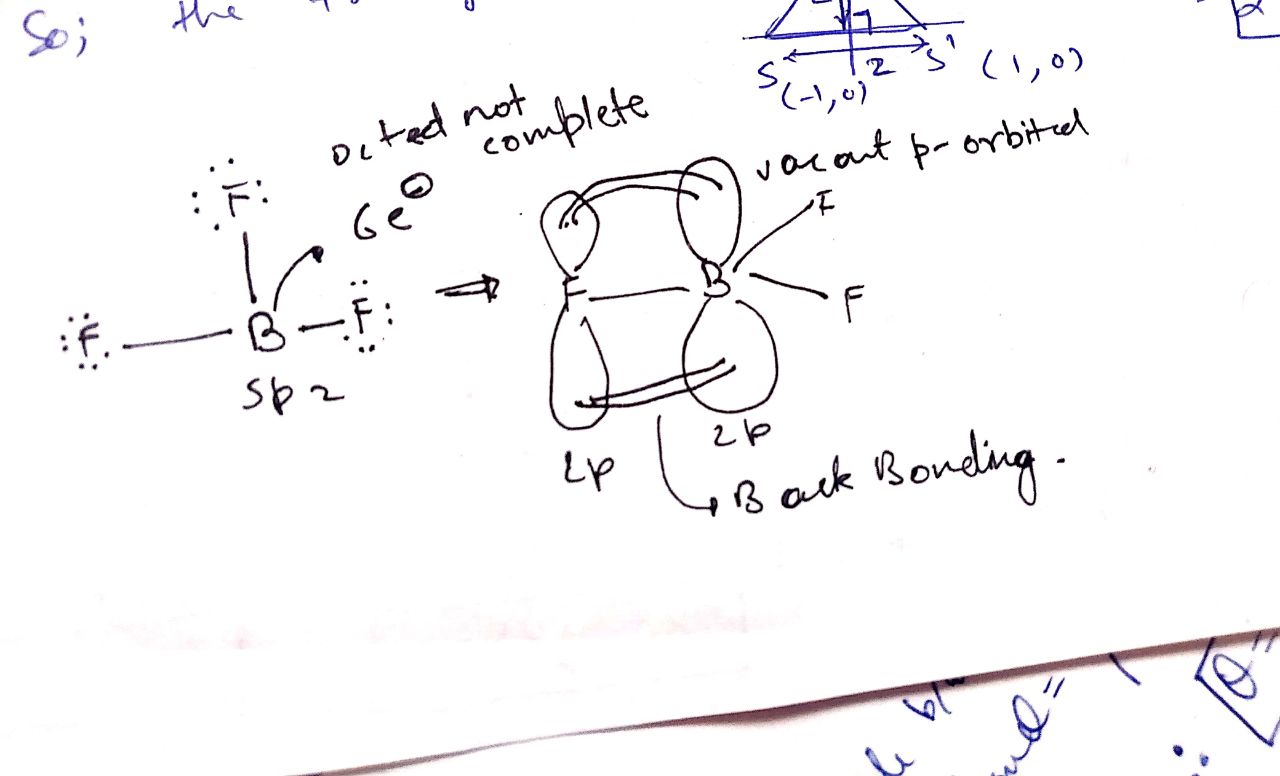 So; the
S S' (1,0)
2
(-1,0)
octed not
complete
6e⊖
vacant p-orbital
:F:
F
:F. B F:
sp2
F B
F
2p 2p
Back Bonding.